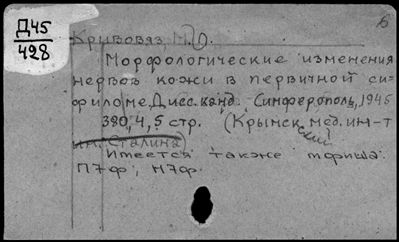 Д45
428
б
Кривовяз, М.О.
Морфологические изменения
нервов кожи в первичной си-
филоме. Дисс. канд. Симферополь, 1945
380, 4, 5 стр. (Крымский мед. ин-т
им. Сталина)
Имеется также тфиша:
П7ф, Н7ф.